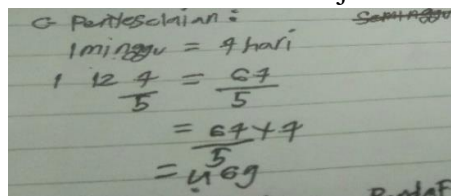 G Penyelesaian :
1 minggu = 7 hari
1 12 4/5 = 64/5
= 64/5 × 7
= 469